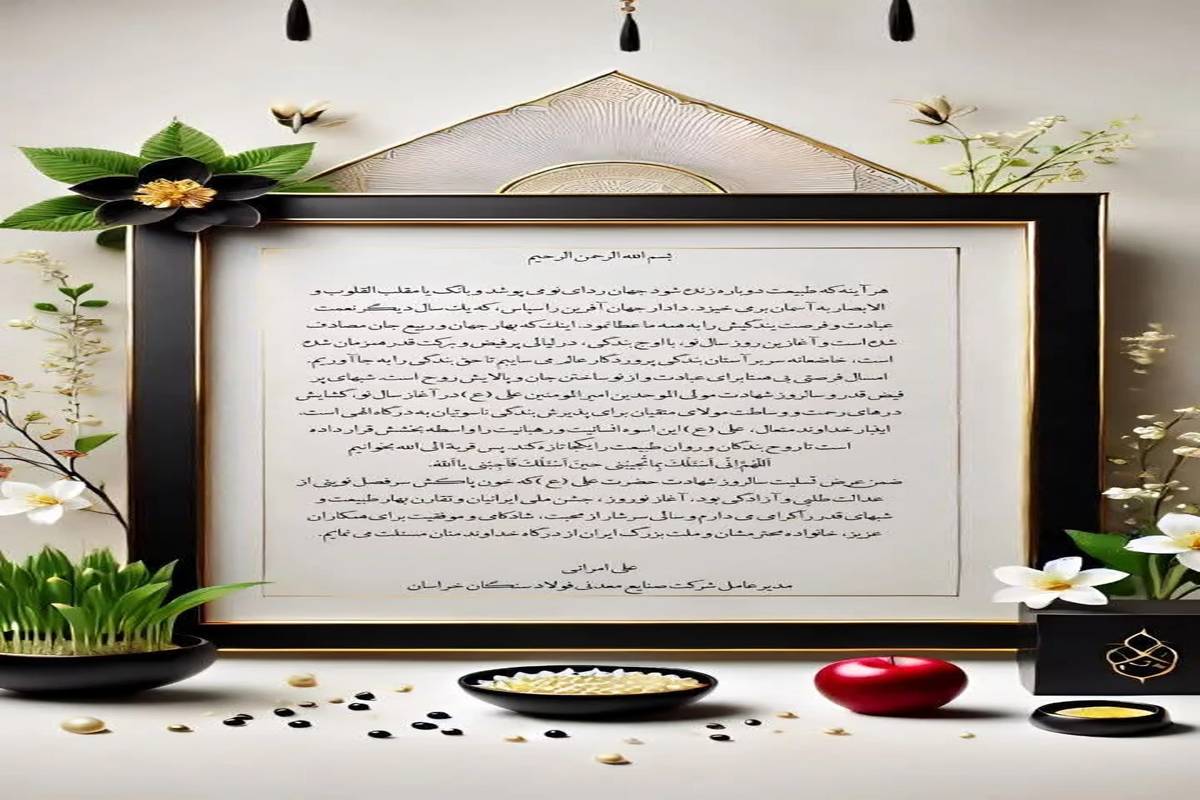 بسم الله الرحمن الرحیم
هر آینه که طبیعت دوباره زنده شود جهان ردای نو می پوشد و بانگ یا مقلب القلوب و
الابصار به آسمان بر می خیزد. دادار جهان آفرین را سپاس، که یک سال دیگر نعمت
عبادت و فرصت بندگیش را به همه ما عطا نمود. اینک که بهار جهان و ربیع جان مصادف
شده است و آغازین روز سال نو، با اوج بندگی، در لیالی پرفیض و برکت قدر همزمان شده
است، خاضعانه سر بر آستان بندگی پروردگار عالم می ساییم تا حق بندگی را به جا آوریم.
امسال فرصتی بی همتا برای عبادت و از نو ساختن جان و پالایش روح است. شبهای پر
فیض قدر و سالروز شهادت مولی الموحدین امیرالمومنین علی (ع) در آغاز سال نو، گشایش
درهای رحمت و وساطت مولای متقیان برای پذیرش بندگی ناسوتیان به درگاه الهی است.
اینبار خداوند متعال، علی (ع) این اسوه انسانیت و رهبانیت را واسطه بخشش قرار داده
است تا روح بندگان و روان طبیعت را یکجا تازه کند. پس قربة الی الله بخوانیم
اَللّهُمَّ اِنّی اَسئَلُکَ بِما تُجیبُنی حینَ اَسئَلُکَ فَاَجِبنی یا اَللهُ.
ضمن عرض تسلیت سالروز شهادت حضرت علی (ع) که خون پاکش سرفصل نوینی از
عدالت طلبی و آزادگی بود، آغاز نوروز، جشن ملی ایرانیان و تقارن بهار طبیعت و
شبهای قدر را گرامی می دارم و سالی سرشار از محبت، شادکامی و موفقیت برای همکاران
عزیز، خانواده محترمشان و ملت بزرگ ایران از درگاه خداوند منان مسئلت می نمایم.
علی امرانی
مدیر عامل شرکت صنایع معدنی فولاد سنگان خراسان